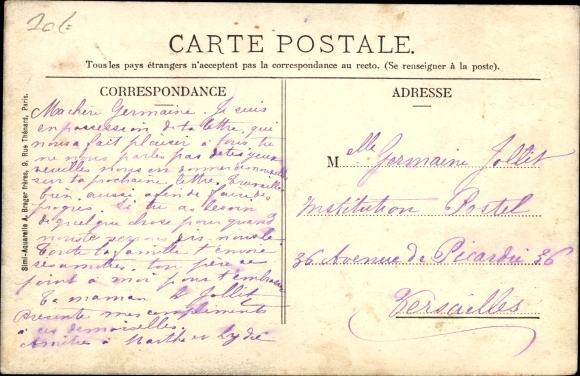 20 c
CARTE POSTALE.
Tous les pays étrangers n'acceptent pas la correspondance au recto. (Se renseigner à la poste).
CORRESPONDANCE
Ma chère Germaine. Je suis
en possession de ta lettre, qui
nous a fait plaisir à tous, tu
ne nous parles pas de tes yeux
veuilles nous en donner des nouvelles
sur ta prochaine lettre. Travailles
bien aussi afin de faire des
Si tu as besoin
de quelque chose pour quand
nous te
Toute la famille t'envoie
ses amitiés. ton père se
joint à moi pour t'embrasser
Ta maman Jollit
Présente mes compliments
à ces demoiselles.
Amitiés à Marthe et Lydie
ADRESSE
Melle Germaine Jollit
Institution Postel
36 Avenue de Picardie 36
Versailles
Simi-Aquarelle A. Breger frères, 9, Rue Thénard, Paris.